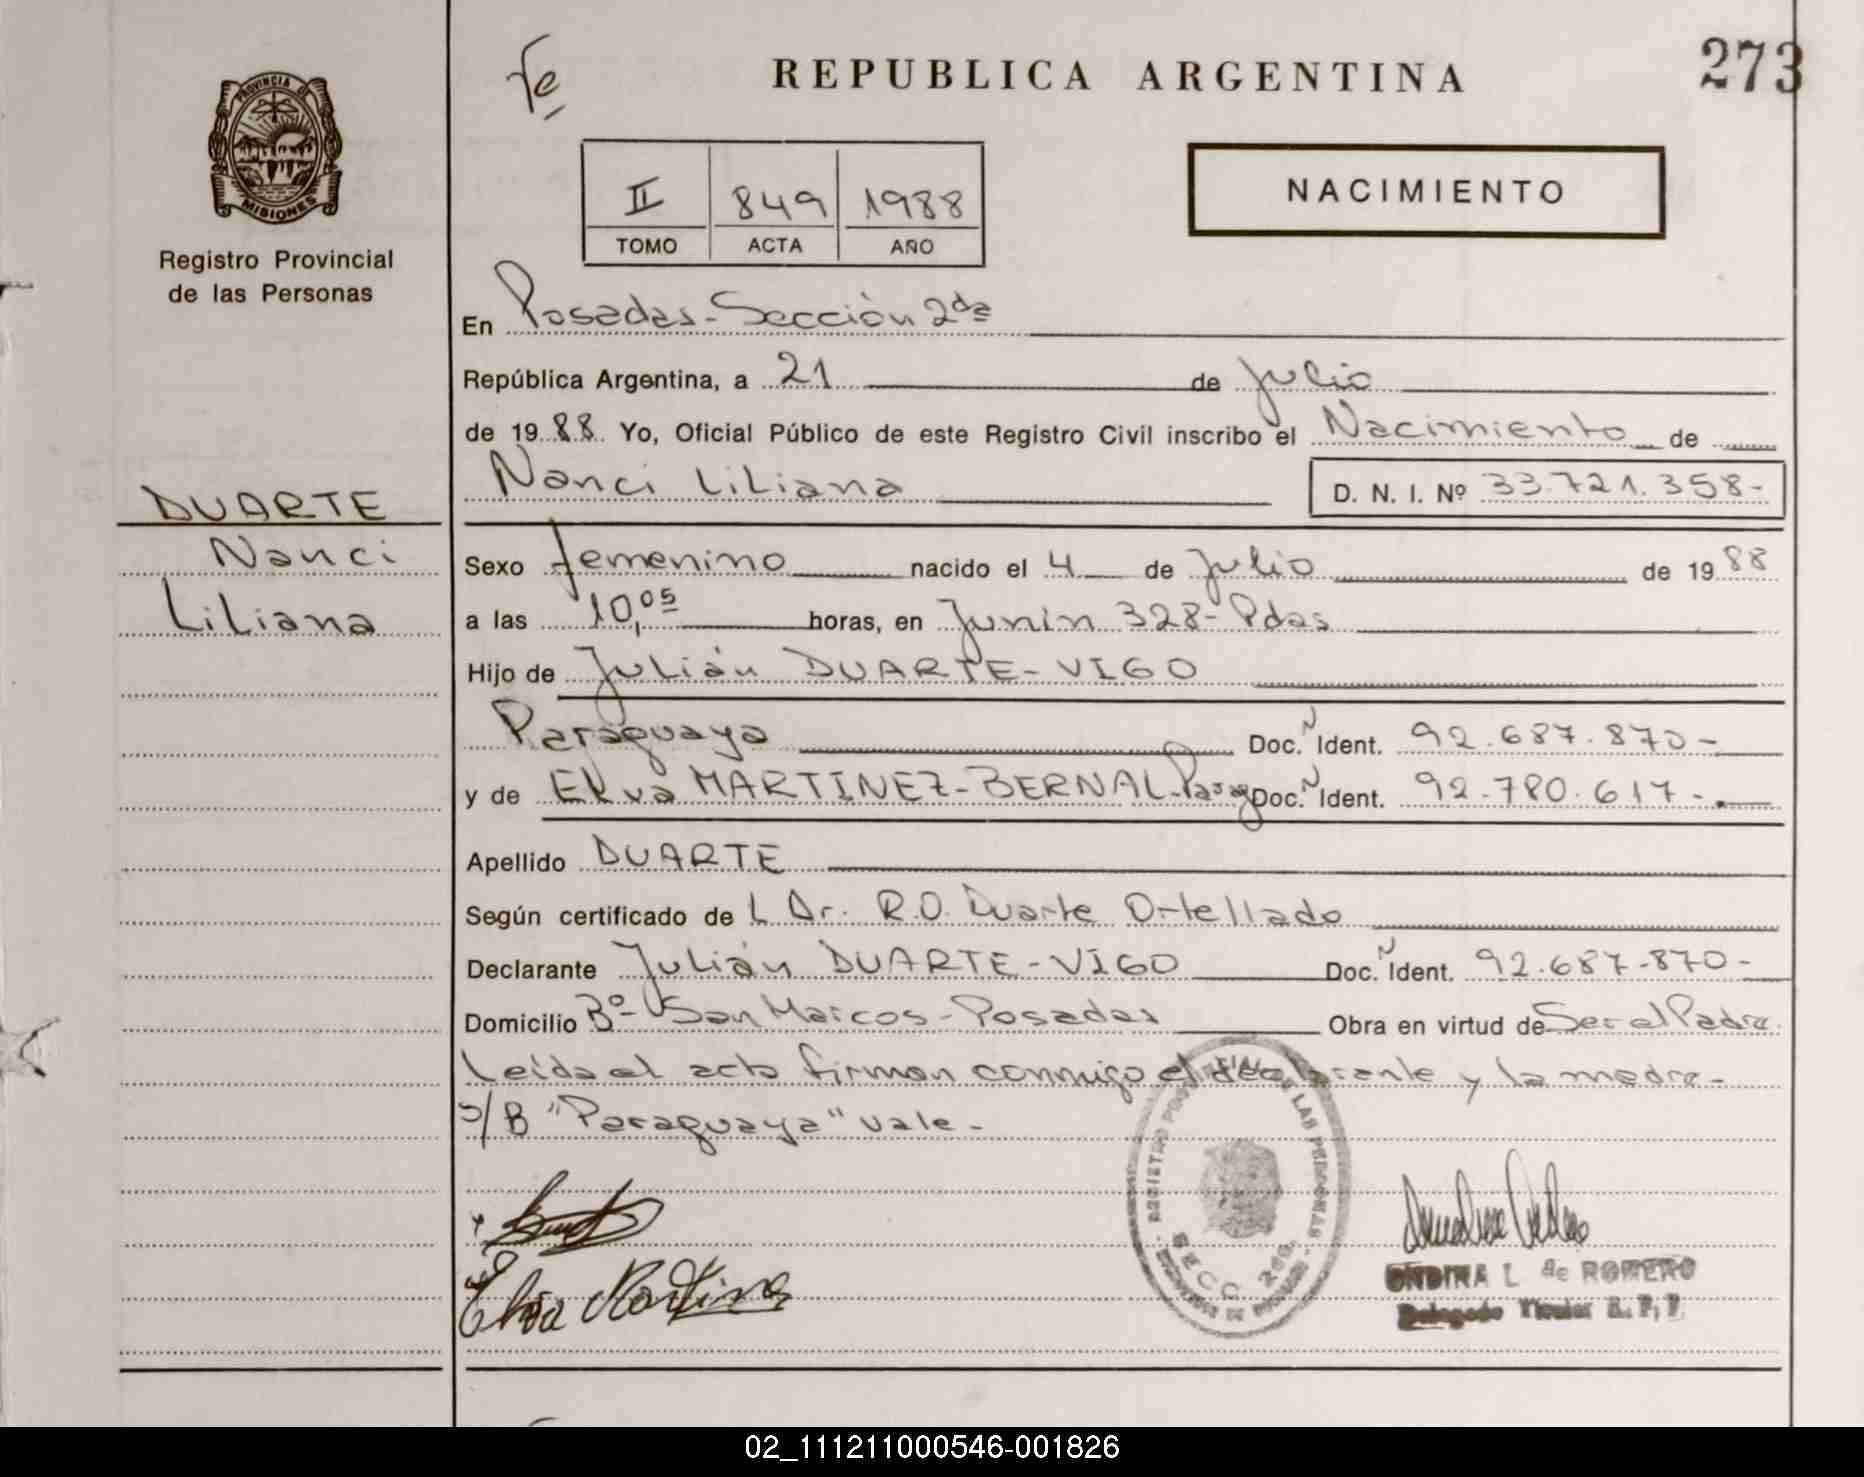 Fe
REPUBLICA ARGENTINA
273
PROVINCIA DE
MISIONES
Registro Provincial
de las Personas
II 849 1988
TOMO ACTA AÑO
NACIMIENTO
En Posadas-Sección 2da
República Argentina, a 21 de Julio
de 1988 Yo, Oficial Público de este Registro Civil inscribo el Nacimiento de
Nanci Liliana D. N. I. Nº 33.721.358-
DUARTE
Nanci
Liliana
Sexo femenino nacido el 4 de Julio de 1988
a las 10,05 horas, en Junín 328-Pdas
Hijo de Julián DUARTE-VIGO
Paraguaya Doc. N Ident. 92.687.870-
y de Elva MARTINEZ-BERNAL-Parag Doc. N Ident. 92.780.617-
Apellido DUARTE
Según certificado de L Dr. R.O. Duarte Ortellado
Declarante Julián DUARTE-VIGO Doc. N Ident. 92.687.870-
Domicilio Bº San Marcos-Posadas Obra en virtud de Ser el Padre
Leída el acta firman conmigo el declarante y la madre-
S/B "Paraguaya" vale-
REGISTRO PROVINCIAL DE LAS PERSONAS
SECC 2da.
Elva Martinez
ONDINA L. de ROMERO
Delegado Titular R. P. P
02_111211000546-001826